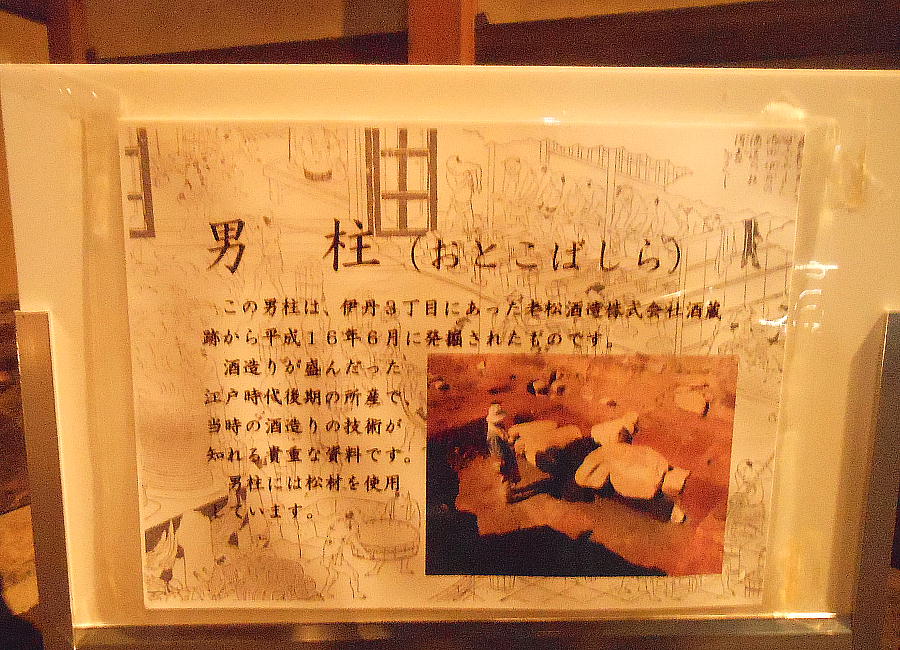 男 柱 (おとこばしら)
この男柱は、伊丹3丁目にあった老松酒造株式会社酒蔵
跡から平成16年6月に発掘されたものです。
酒造りが盛んだった
江戸時代後期の所産で、
当時の酒造りの技術が
知れる貴重な資料です。
男柱には松材を使用
しています。